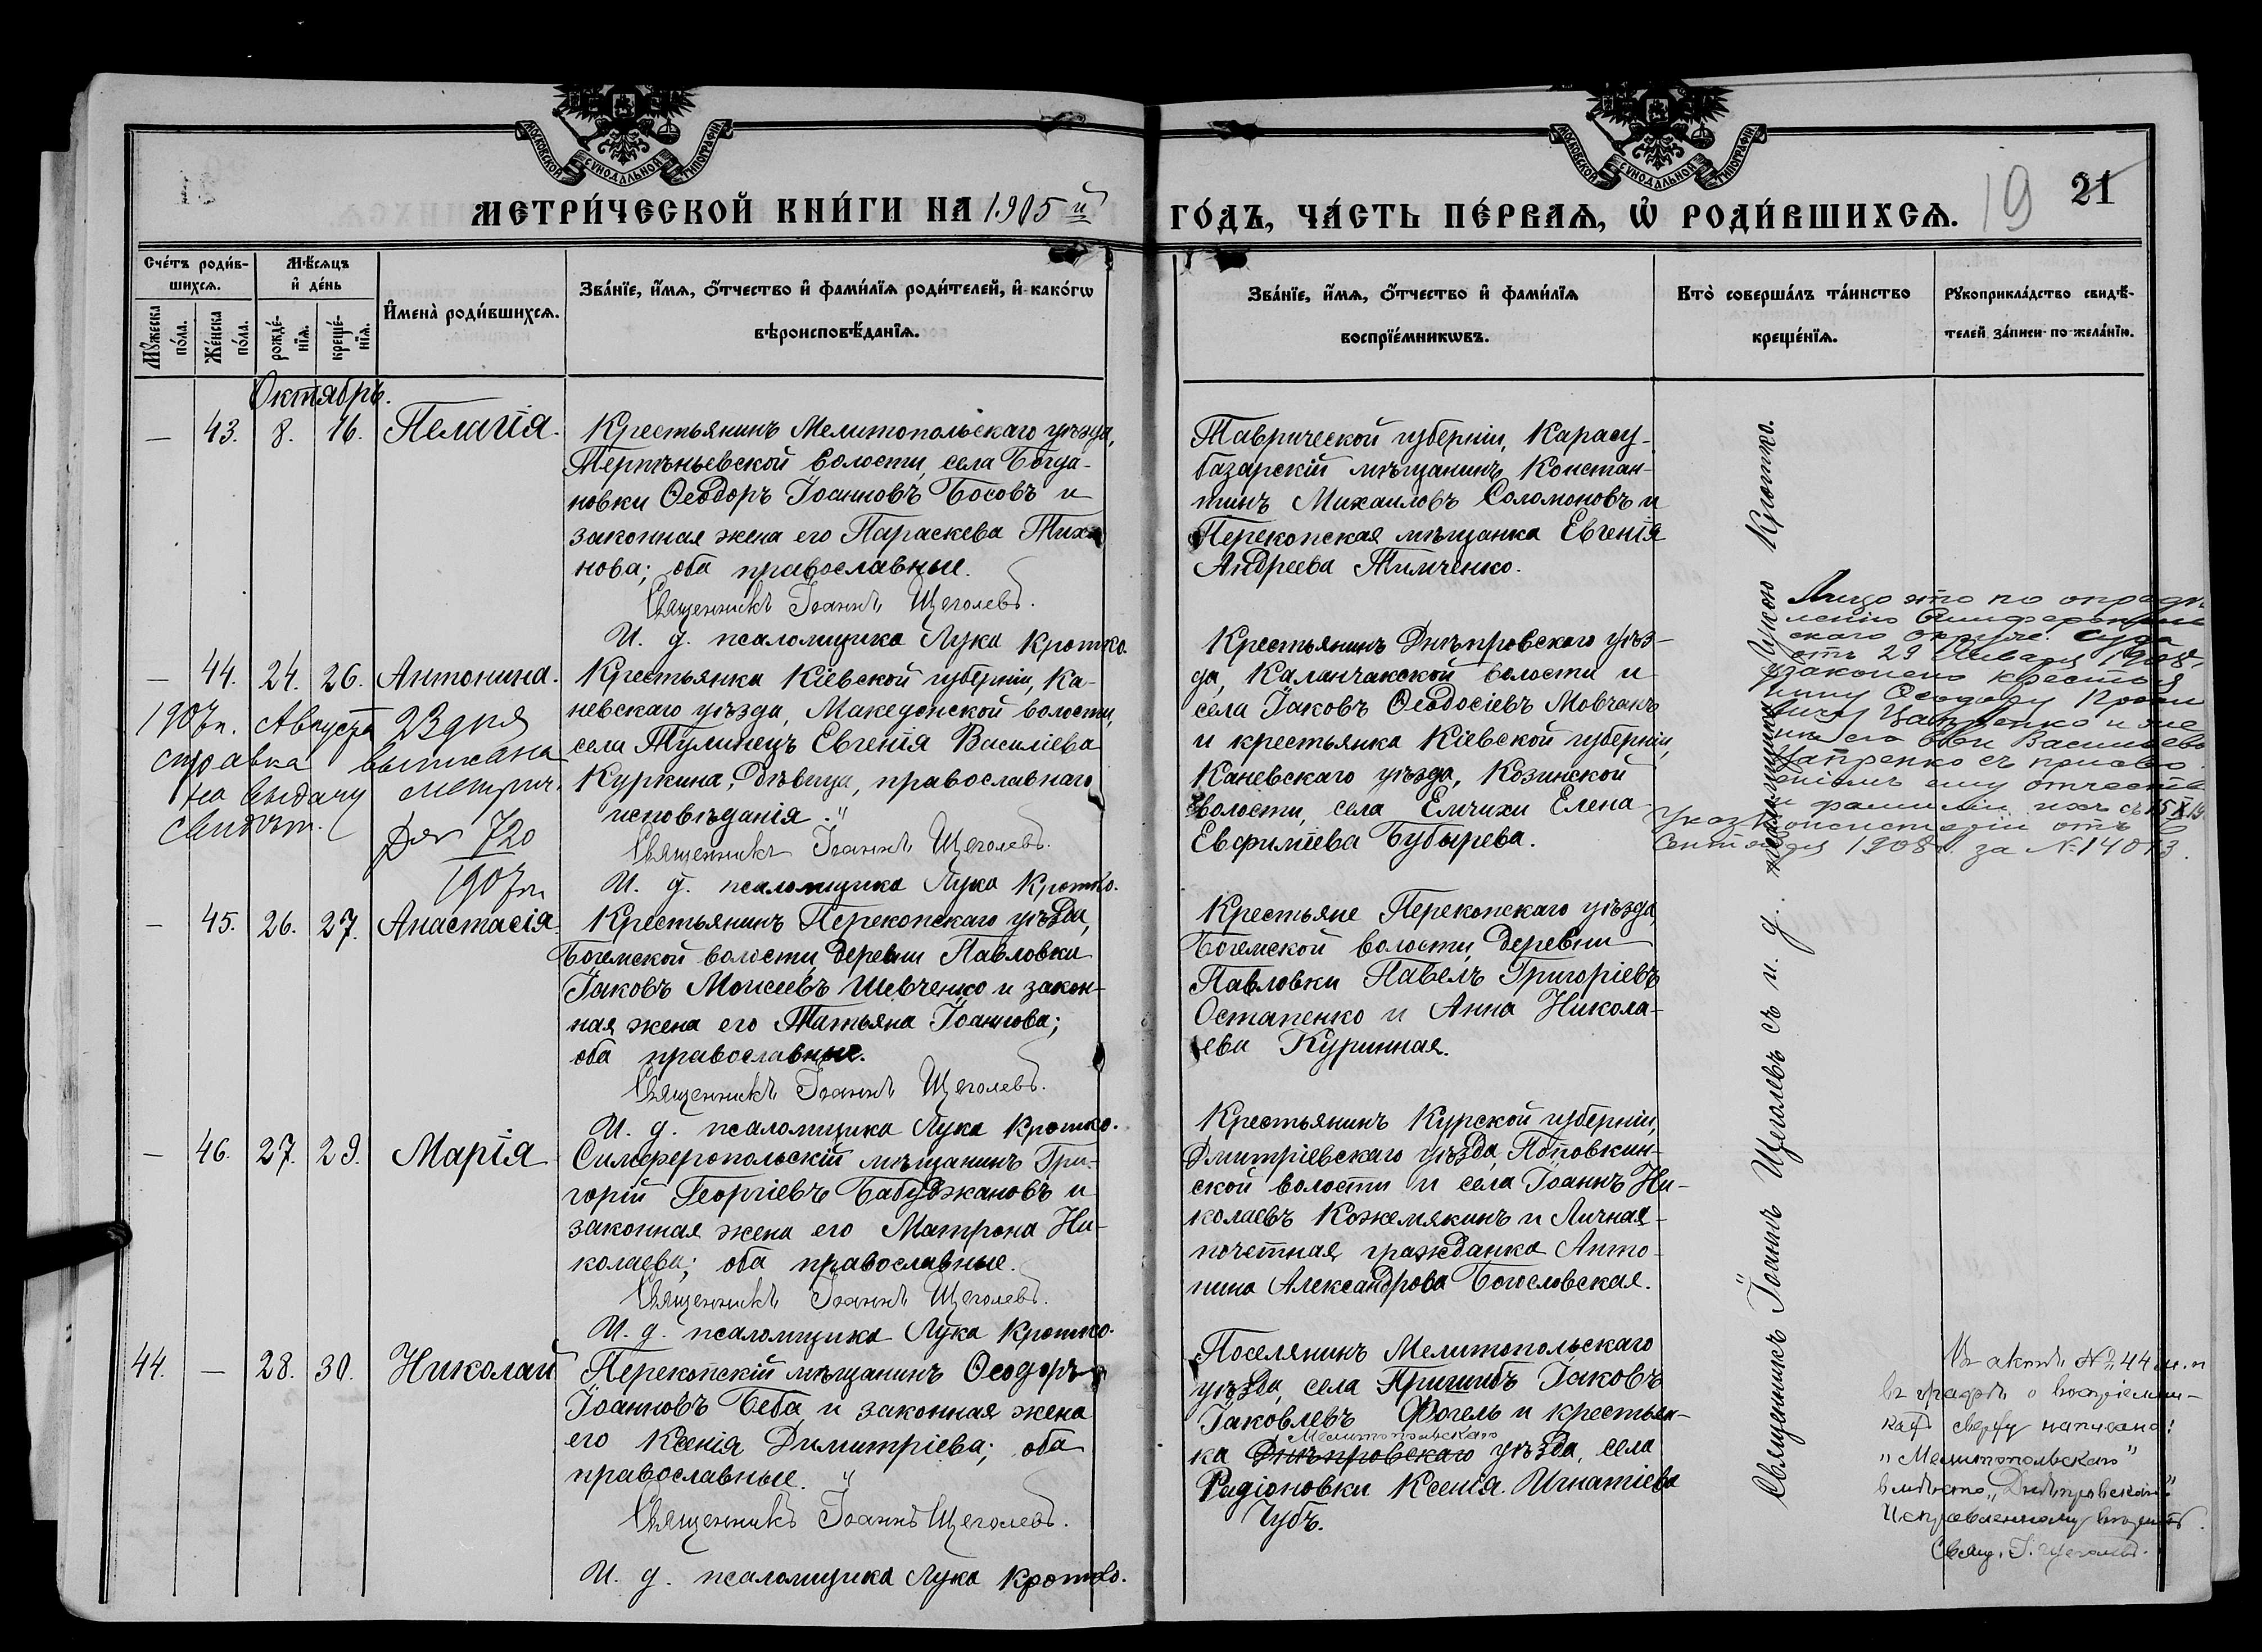 МОСКОВСКОЙ СѴНОДАЛЬНОЙ ТИПОГРАФІИ
МОСКОВСКОЙ СѴНОДАЛЬНОЙ ТИПОГРАФІИ
МЕТРИ́ЧЕСКОЙ КНИ́ГИ НА 1905 й
ГО́ДЪ, ЧА́СТЬ ПЕ́РВАЯ, Ѡ҆ РОДИ́ВШИХСЯ.
19 21
Сче́тъ роди́в-
шихся.
Мꙋ́жеска по́ла.
Же́нска по́ла.
Мѣ́сяцъ
и҆ де́нь
рожде́-
нїя.
креще́-
нїя.
И҆мена̀ роди́вшихся.
Зва́нїе, и҆́мя, ѻ҆́тчество и҆ фами́лїя роди́телей, и҆ како́гѡ
вѣроисповѣ́данїя.
Зва́нїе, и҆́мя, ѻ҆́тчество и҆ фами́лїя
воспрїе́мникѡвъ.
Кто̀ соверша́лъ та́инство
креще́нїя.
Рꙋкоприкла́дство свидѣ́-
телей за́писи по жела́нїю.
Октябрь.
— 43. 8. 16. Пелагія.
Крестьянинъ Мелитопольскаго уѣзда,
Терпѣньевской волости, села Богда-
новки Ѳеодоръ Іоанновъ Босовъ и
законная жена его Параскева Тихо-
нова; оба православные.
Священникъ Іоаннъ Щеголевъ.
И. д. псаломщика Лука Кротко.
Таврической губерніи, Карасу-
базарскій мѣщанинъ Констан-
тинъ Михаиловъ Соломоновъ и
Перекопская мѣщанка Евгенія
Андреева Тимченко.
— 44. 24. 26. Антонина.
Крестьянка Кіевской губерніи, Ка-
невскаго уѣзда, Македонской волости,
села Тулинецъ Евгенія Василіева
Куркина, дѣвица, православнаго
исповѣданія."
Священникъ Іоаннъ Щеголевъ.
И. д. псаломщика Лука Кротко.
1907 г. Августа 23 дня
справка выписана
на выдачу метрич.
свидѣт.
720
1907 г.
Крестьянинъ Днѣпровскаго уѣз-
да, Каланчакской волости и
села Іаковъ Ѳеодосіевъ Мовчанъ
и крестьянка Кіевской губерніи,
Каневскаго уѣзда, Козинской
волости, села Емчихи Елена
Евфиміева Бубырева.
Лицо это по опредѣ
леніи Симферополь
скаго окруж. суда
отъ 29 Января 1908 г.
узаконено крестья
нину Ѳеодору
и же
нѣ его Евѣ Василіево
съ присво
еніемъ ему отчества
и фамиліи ихъ
Указъ Консисторіи отъ
Сентября 1908 г. за № 14013.
— 45. 26. 27. Анастасія.
Крестьянинъ Перекопскаго уѣзда,
Богемской волости, деревни Павловки
Іаковъ Моисеевъ Шевченко и закон-
ная жена его Татьяна Іоаннова;
оба православные.
Священникъ Іоаннъ Щеголевъ.
И. д. псаломщика Лука Кротко.
Крестьяне Перекопскаго уѣзда,
Богемской волости, деревни
Павловки Павелъ Григоріевъ
Остапенко и Анна Никола-
ева Куринная.
— 46. 27. 29. Марія
Симферопольскій мѣщанинъ Гри-
горій Георгіевъ Бабуджановъ и
законная жена его Матрона Ни-
колаева; оба православные.
Священникъ Іоаннъ Щеголевъ.
И. д. псаломщика Лука Кротко.
Крестьянинъ Курской губерніи,
Дмитріевскаго уѣзда, Поповкин-
ской волости и села Іоаннъ Ни-
колаевъ Кожемякинъ и Личная
почетная гражданка Анто-
нина Александрова Богословская.
44. — 28. 30. Николай
Перекопскій мѣщанинъ Ѳеодоръ
Іоанновъ Беба и законная жена
его Ксенія Димитріева; оба
православные."
Священникъ Іоаннъ Щеголевъ.
И. д. псаломщика Лука Кротко.
Поселянинъ Мелитопольскаго
уѣзда, села Пришибъ Іаковъ
Іаковлевъ Фогель и крестьян-
Мелитопольскаго
ка Днѣпровскаго уѣзда, села
Радіоновки Ксенія Игнатіева
Чубъ.
Священникъ Іоаннъ Щеголевъ съ и. д. псаломщика Лукою Кротко.
Въ актѣ № 44 м. п.
въ графѣ о воспріемни-
кахъ сверху написано:
„Мелитопольскаго"
вмѣсто „Днѣпровскаго".
Исправленному вѣрить.
Свящ. І. Щеголевъ.